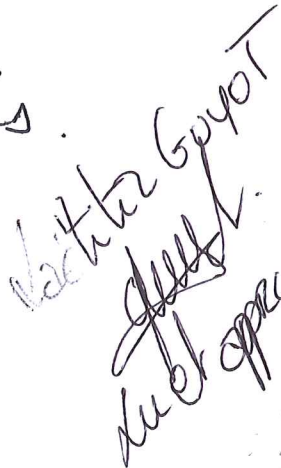 Laetitia Guyot
Lu et appro